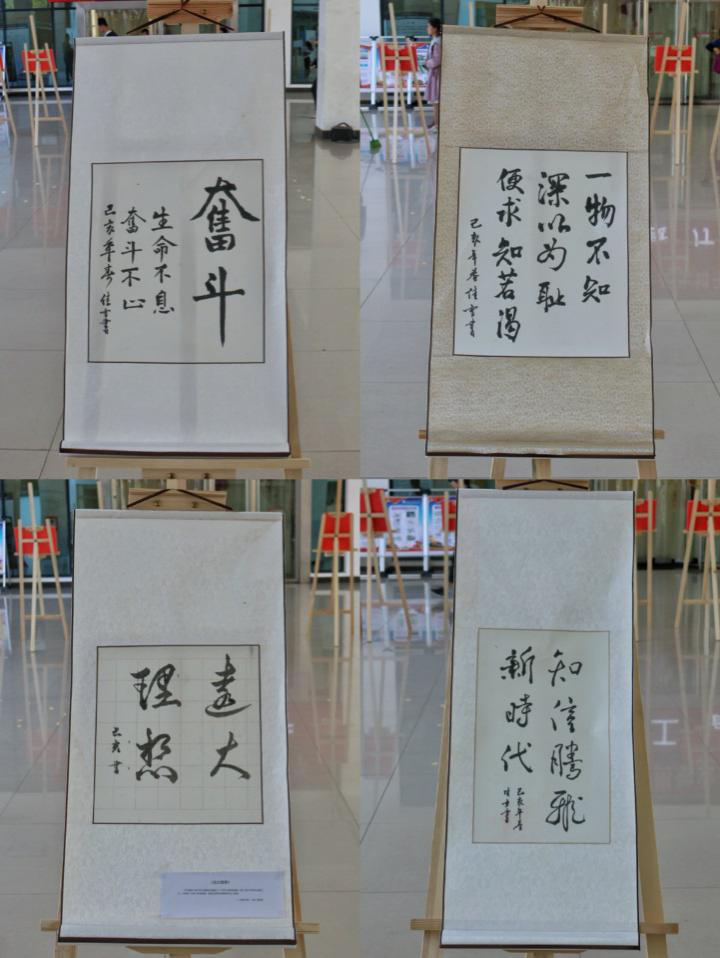 奮斗
生命不息
奮斗不止
己亥年春 佳雪書
一物不知
深以为耻
便求知若渴
己亥年春佳雪書
遠大
理想
己亥書
知信騰飛
新時代
己亥年春
佳雪書